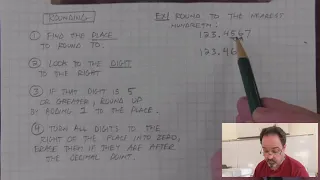 ROUNDING
① FIND THE PLACE
TO ROUND TO.
② LOOK TO THE DIGIT
TO THE RIGHT
③ IF THAT DIGIT IS 5
OR GREATER, ROUND UP
BY ADDING 1 TO THE PLACE.
④ TURN ALL DIGITS TO THE
RIGHT OF THE PLACE INTO ZERO,
ERASE THEM IF THEY ARE AFTER
THE DECIMAL POINT.
EX/ ROUND TO THE NEAREST
HUNDREDTH:
123.4567
123.46